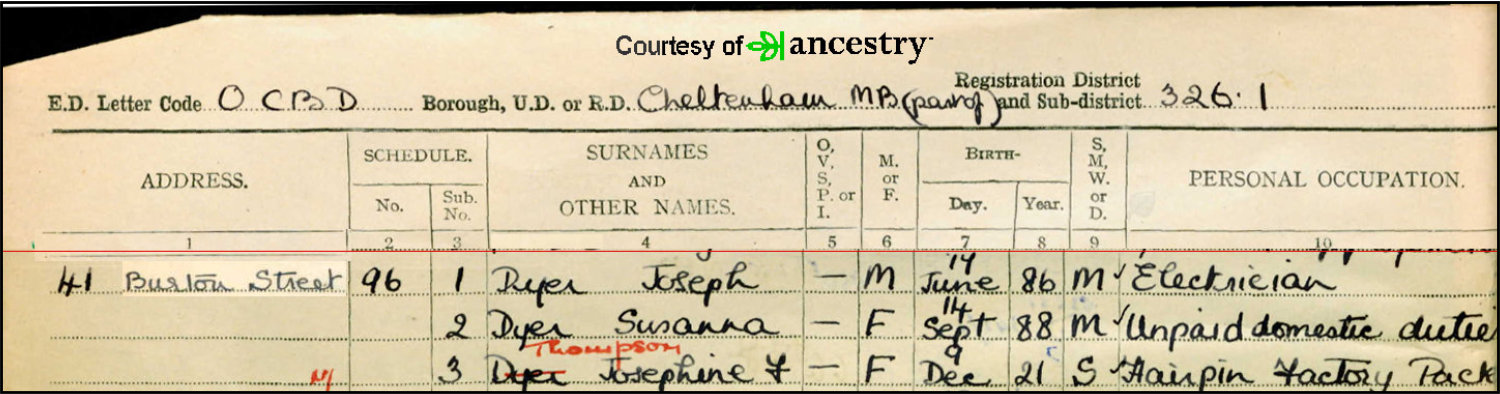 Courtesy of ancestry
Registration District
E.D. Letter Code O C B D Borough, U.D. or R.D. Cheltenham MB (part of) and Sub-district 326.1
ADDRESS. SCHEDULE. SURNAMES AND OTHER NAMES. O, V, S, P. or I. M. or F. BIRTH- S, M, W. or D. PERSONAL OCCUPATION.
No. Sub. No. Day. Year.
1 2 3 4 5 6 7 8 9 10
41 Burton Street 96 1 Dyer Joseph — M 14 June 86 M Electrician
2 Dyer Susanna — F 14 Sept 88 M Unpaid domestic dutie
Thompson
3 Dyer Josephine F — F 9 Dec 21 S Hairpin Factory Pack